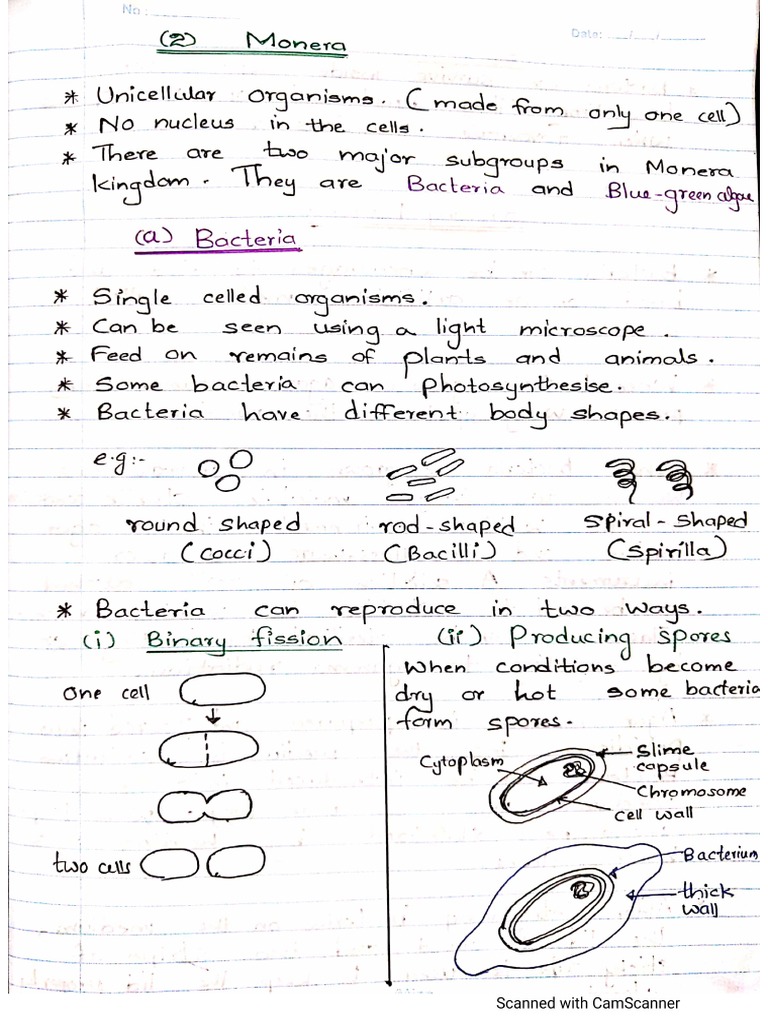 No :
Date:
(2) Monera
* Unicellular organisms. (made from only one cell)
* No nucleus in the cells.
* There are two major subgroups in Monera
kingdom. They are Bacteria and Blue-green algae
(a) Bacteria
* Single celled organisms.
* Can be seen using a light microscope.
* Feed on remains of plants and animals.
* Some bacteria can photosynthesise.
* Bacteria have different body shapes.
e.g:-
round shaped rod-shaped spiral-shaped
(cocci) (Bacilli) (spirilla)
* Bacteria can reproduce in two ways.
(i) Binary fission
one cell
two cells
(ii) Producing spores
When conditions become
dry or hot some bacteria
form spores.
Cytoplasm
Slime
capsule
Chromosome
Cell wall
Bacterium
thick
wall
Scanned with CamScanner